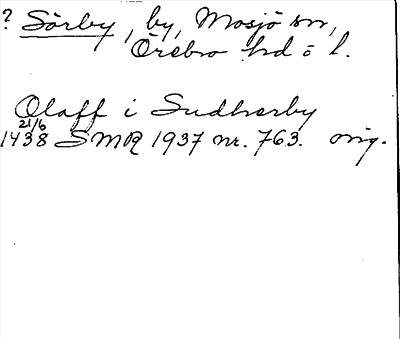 ? Sörby, by, Mosjö sn,
Örebro hd o l.
Olaff i Sudherby
21/6
1438 SMR 1937 nr. 763. orig.